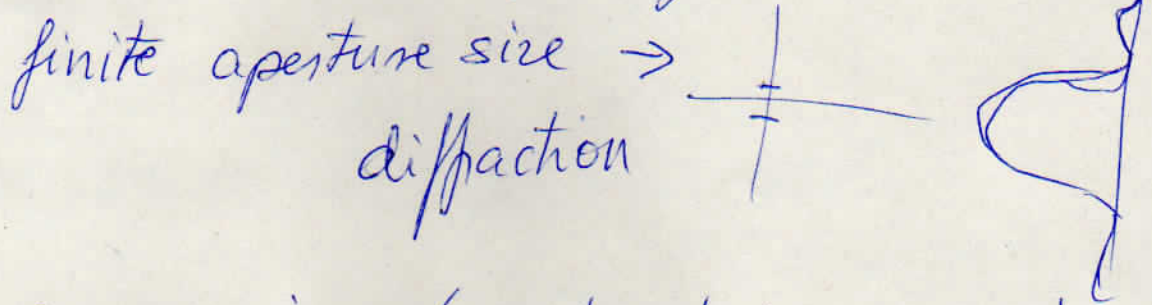 finite aperture size →
diffraction